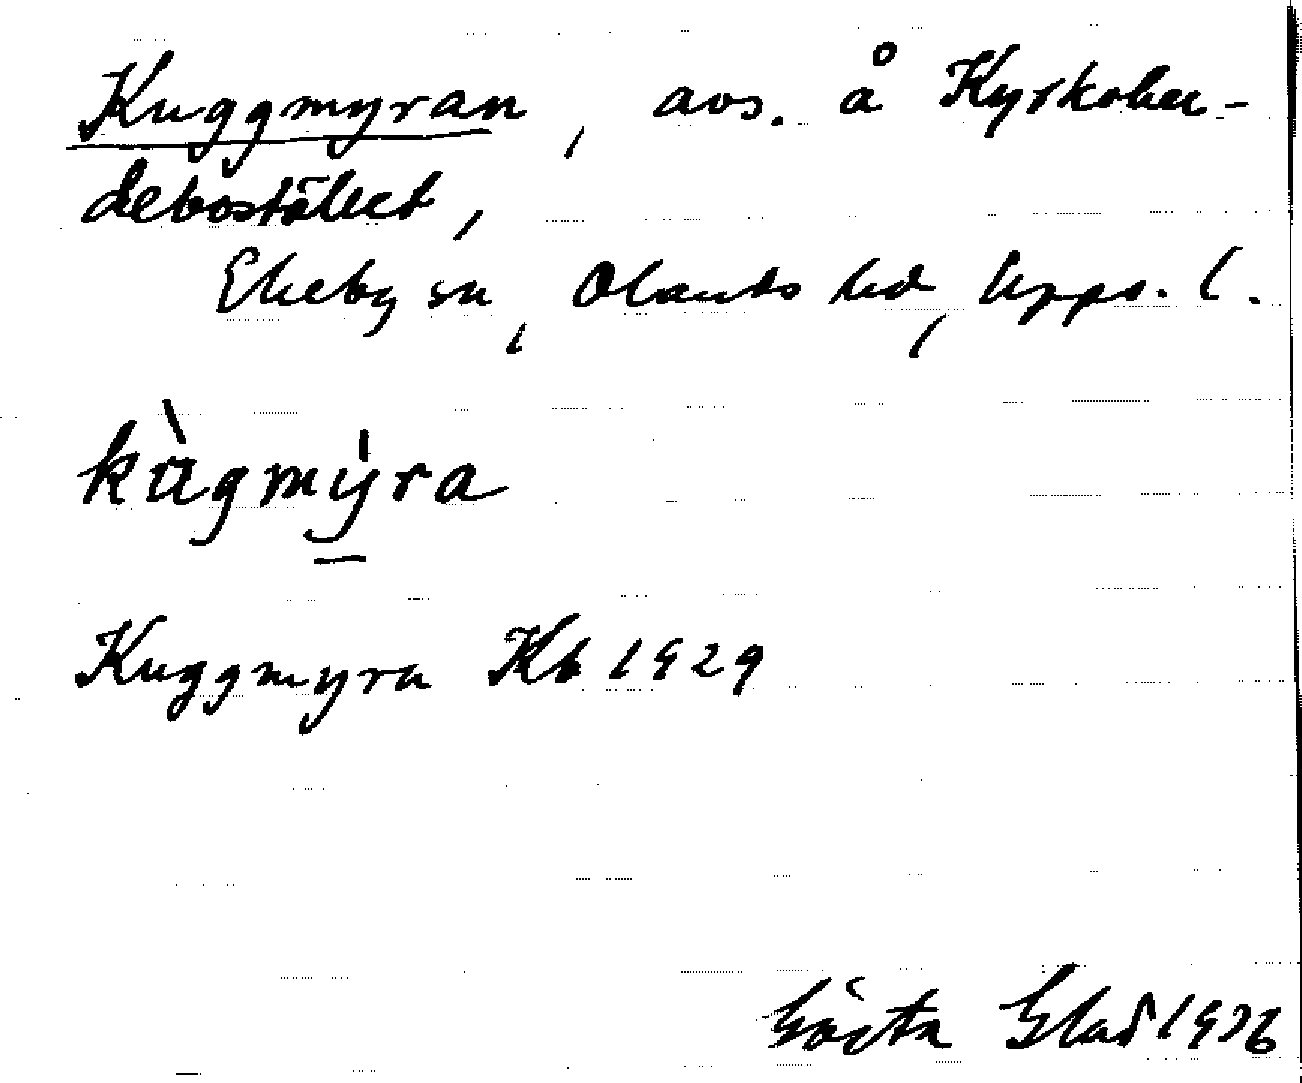 Kuggmyran, avs. å Kyrkoher-
debostället,
Ekeby sn, Olands hd, Upps. l.
kùgmy̱̍ra
Kuggmyra Kb 1929
Gösta Glad 1936